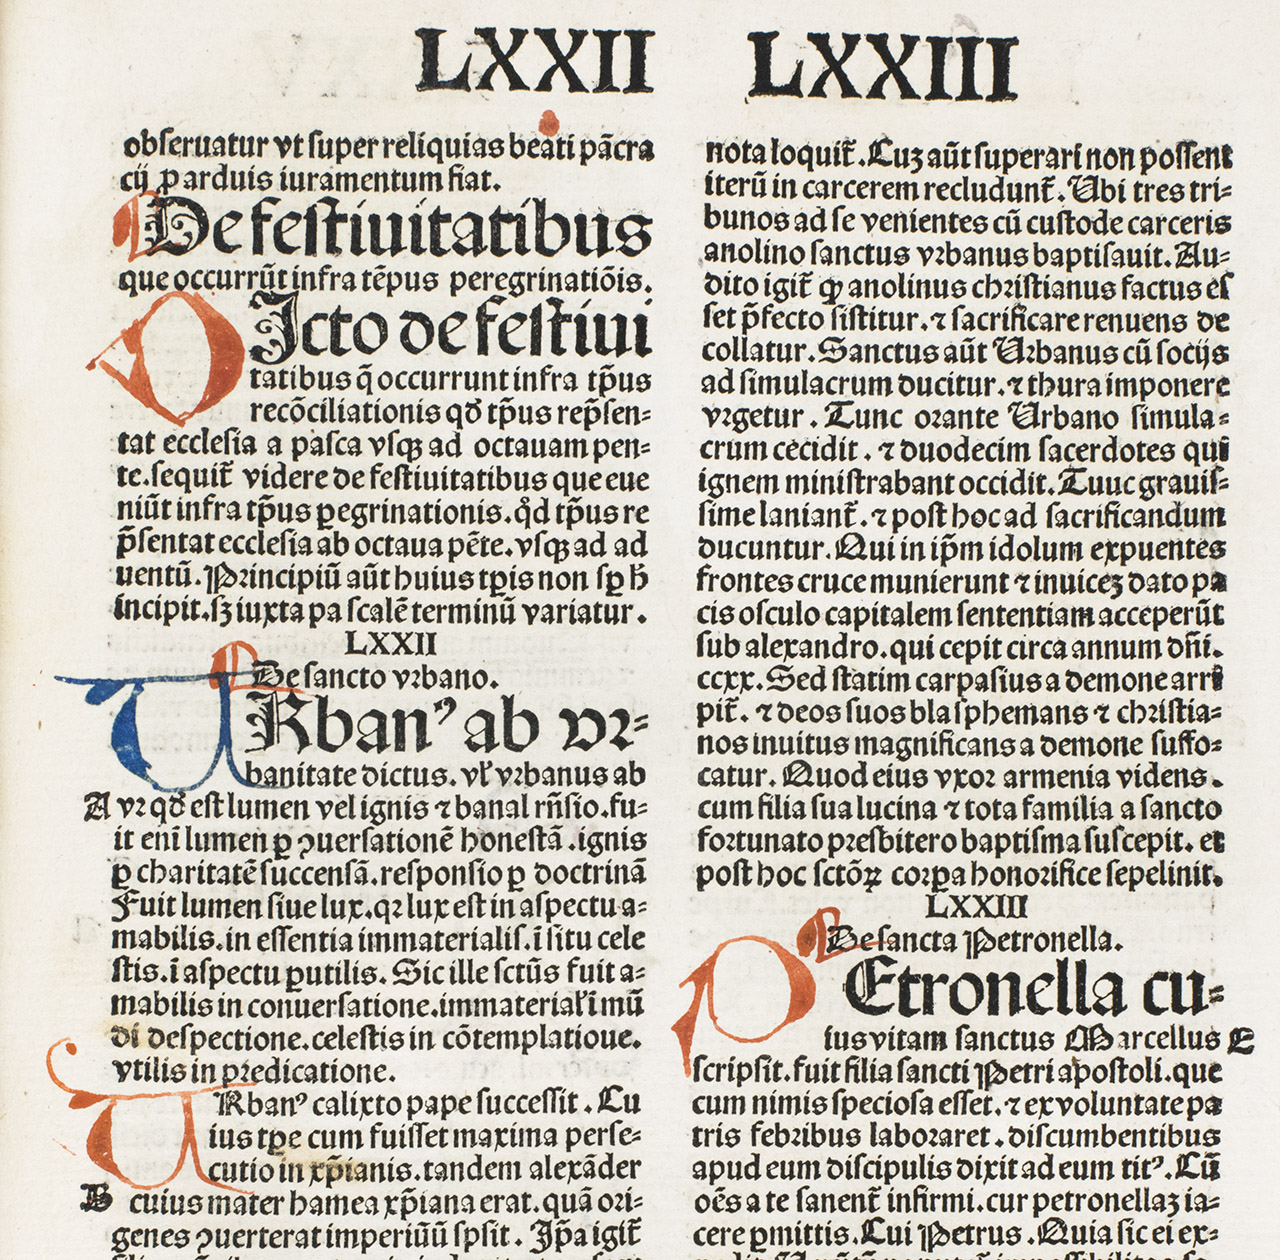 LXXII
obseruatur vt super reliquias beati pãcra
cij ꝑ arduis iuramentum fiat.
De festiuitatibus
que occurrũt infra tẽpus peregrinatiõis.
DIcto de festiui
tatibus q̃ occurrunt infra tp̃us
recõciliationis qđ tp̃us rep̃sen=
tat ecclesia a pasca vsqꝫ ad octauam pen=
te.sequit̃ videre de festiuitatibus que eue
niũt infra tp̃us ꝑegrinationis.q̊d tp̃us re
p̃sentat ecclesia ab octaua pẽte.vsqꝫ ad ad
uentũ.Principiũ aũt huius tꝑis non sꝑ ħ
incipit.sꝫ iuxta pa scalẽ terminũ variatur.
LXXII
De sancto vrbano.
URbanꝰ ab vr=
banitate dictus. vł vrbanus ab
A vr qđ est lumen vel ignis ⁊ banal rñsio.fu=
it enĩ lumen ꝑ ꝯuersationẽ honestã.ignis
ꝑ charitatẽ succensã.responsio ꝑ doctrinã
Fuit lumen siue lux.qꝛ lux est in aspectu a=
mabilis.in essentia immaterialis.ĩ situ cele
stis.ĩ aspectu ꝑutilis. Sic ille sctũs fuit a=
mabilis in conuersatione.immateriał ĩ mũ
di despectione.celestis in cõtemplatioue.
vtilis in predicatione.
URbanꝰ calixto pape successit. Cu
ius tꝑe cum fuisset maxima perse=
cutio in xp̃ianis.tandem alexãder
B cuius mater hamea xp̃iana erat.quã ori=
genes ꝯuerterat imperiũũ spsit. Ip̃a igit̃
LXXIII
nota loquit̃.Cuꝫ aũt superari non possent
iterũ in carcerem recludunt̃.Ubi tres tri=
bunos ad se venientes cũ custode carceris
anolino sanctus vrbanus baptisauit.Au=
dito igit̃ ꝙ anolinus christianus factus es
set p̃fecto sistitur.⁊ sacrificare renuens de
collatur.Sanctus aũt Urbanus cũ socijs
ad simulacrum ducitur.⁊ thura imponere
vrgetur. Tunc orante Urbano simula=
crum cecidit. ⁊ duodecim sacerdotes qui
ignem ministrabant occidit.Tuuc grauis=
sime laniant̃.⁊ post hoc ad sacrificandum
ducuntur.Qui in ip̃m idolum expuentes
frontes cruce munierunt ⁊ inuiceꝫ dato pa
cis osculo capitalem sententiam acceperũt
sub alexandro.qui cepit circa annum dñi.
ccxx.Sed statim carpasius a demone arri
pit̃. ⁊ deos suos bla sphemans ⁊ christia=
nos inuitus magnificans a demone suffo=
catur. Quod eius vxor armenia videns.
cum filia sua lucina ⁊ tota familia a sancto
fortunato presbitero baptisma suscepit. et
post hoc sctõꝝ corꝑa honorifice sepelinit.
LXXIII
De sancta Petronella.
PEtronella cu=
ius vitam sanctus Marcellus E
scripsit.fuit filia sancti Petri apostoli.que
cum nimis speciosa esset.⁊ ex voluntate pa
tris febribus laboraret.discumbentibus
apud eum discipulis dixit ad eum titꝰ.Cũ
oẽs a te sanent̃ infirmi.cur petronellaꝫ ia=
cere ꝑmittis.Cui Petrus.Quia sic ei ex=